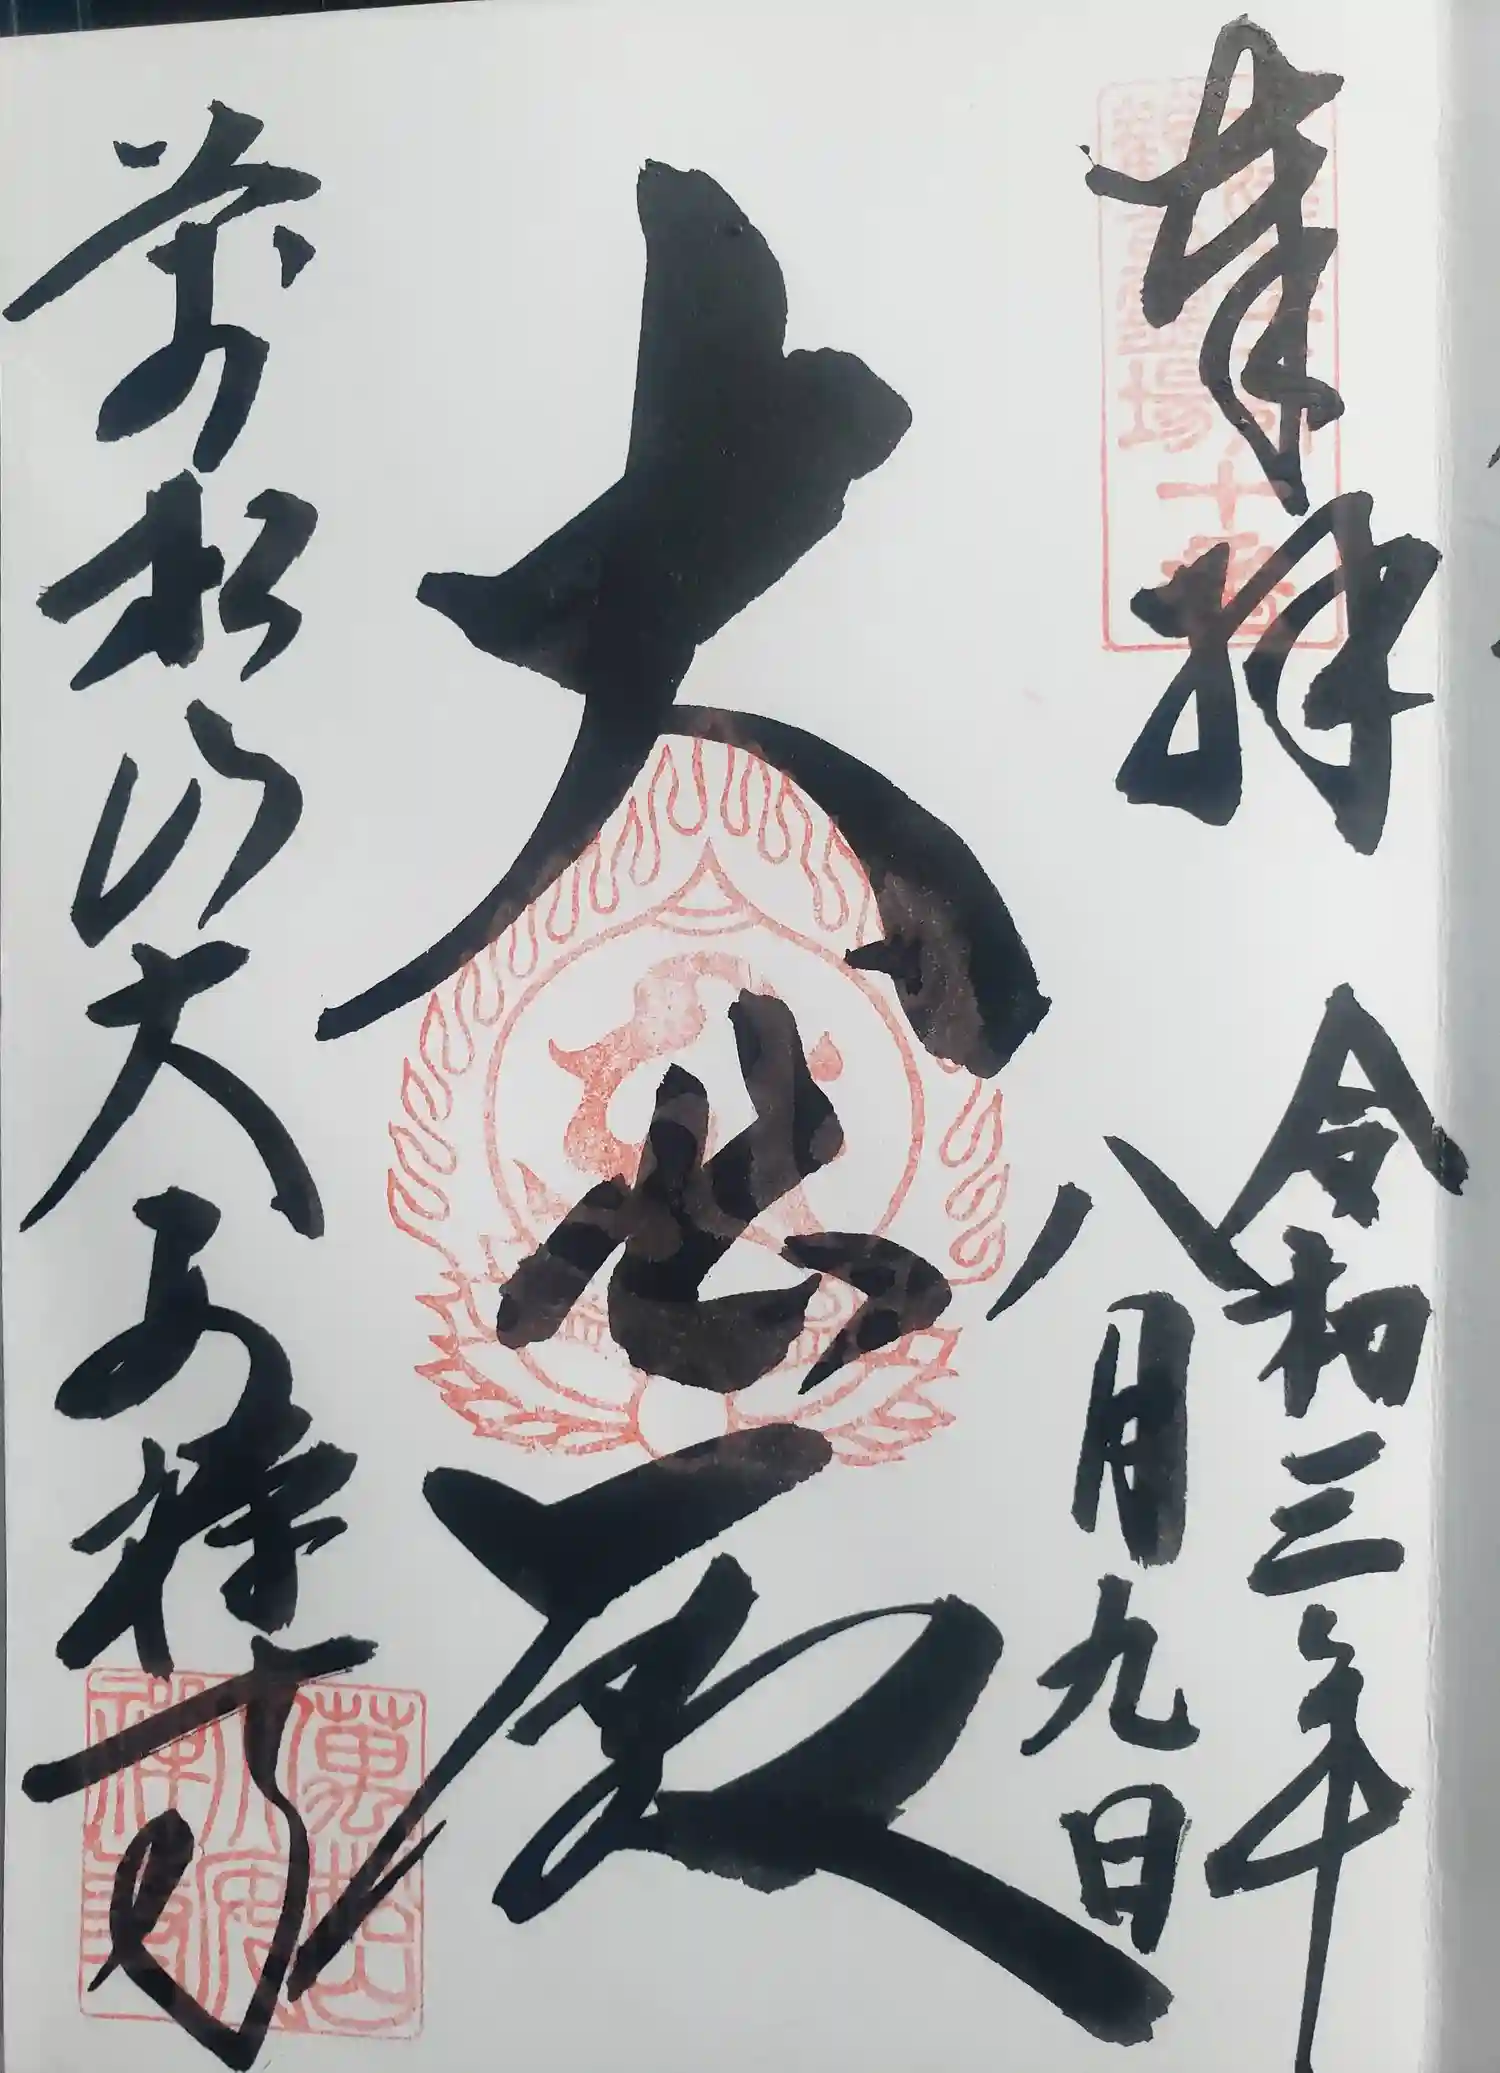 奉拝
令和三年
八月九日
大悲殿
萬松山大安禅寺
観音霊場
十番
萬松山
大安
禅寺